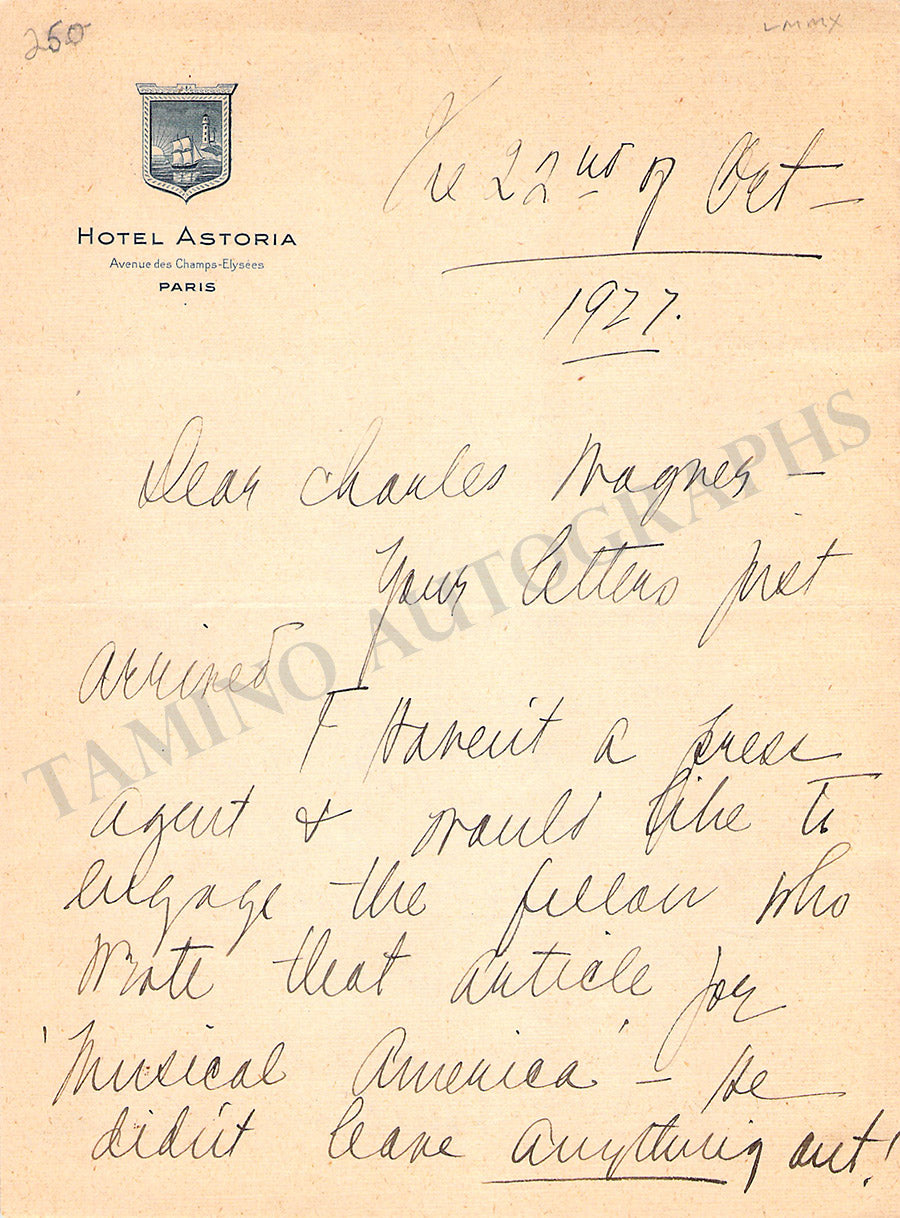 250
LMMX
HOTEL ASTORIA
Avenue des Champs-Elysées
PARIS
The 22nd of Oct —
1927.
Dear Charles Wagner —
Your letters just
arrived
I Haven't a press
agent & would like to
engage the fellow who
wrote that article for
'Musical America' — He
didn't leave anything out!
TAMINO AUTOGRAPHS